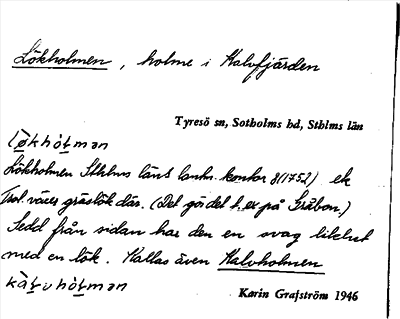 Lökholmen, holme i Kalvfjärden
Tyresö sn, Sotholms hd, Sthlms län
Lökholmen Sthlms läns lantm. kontor 8(1752) ek
Trol. växer gräslök där. (Det gör det t. ex på Gråbon.)
Sedd från sidan har den en svag likhet
med en lök. Kallas även Kalvholmen
Karin Grafström 1946